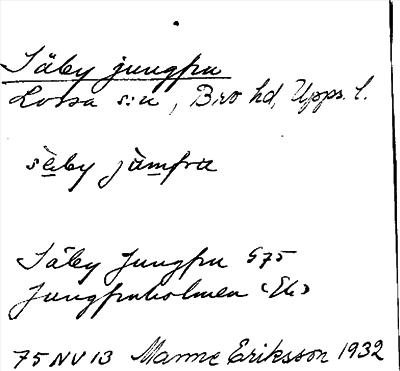 Säby jungfru
Lossa s:n, Bro hd, Upps. l.
säby jåmfrᵫ
Säby Jungfru 575
Jungfruholmen (Ek)
75 NV 13 Manne Eriksson 1932